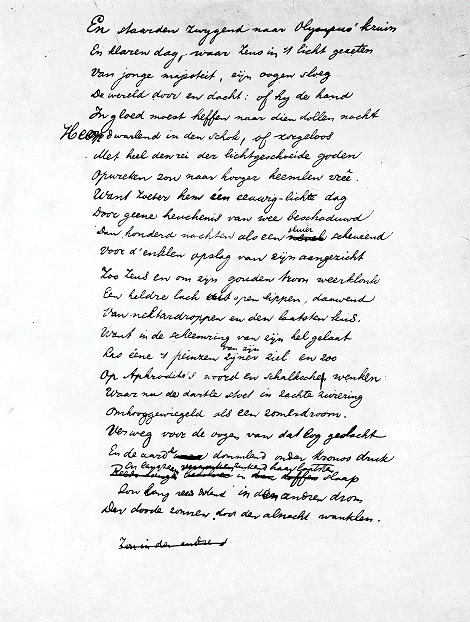 En staarden zwygend naar Olympus' kruin
En klaren dag, waar Zeus in 't licht gezeten
Van jonge majesteit, zijn oogen sloeg
De wereld door en dacht: of hy de hand
In gloed moest heffen naar dien dollen nacht
Heendwarlend in den schok, of zorgeloos
Met heel den rei der lichtgeschoeide goden
Opwieken zou naar hooger heemlen vreê.
Want zoeter hem één eeuwig-lichte dag
Door geene heuchenis van wee beschaduwd
Dan honderd nachten als een sluier scheurend
Voor d'enklen opslag van zijn aangezicht
Zoo Zeus en om zijn gouden troon weerklonk
Een heldre lach uit open lippen, dauwend
Van nektardroppen en den laatsten kus.
Want in de scheemring van zijn hel gelaat
Las ééne 't peinzen van zijn ziel en zoo
Op Aphrodite's woord en schalksche wenken
Waar nu de dartle stoet in zachte zwiering
Omhooggewiegeld als een zomerdroom.
Verweg voor de oogen van dat log geslacht
En de aard dommlend onder Kronos druk
in slaap
Zou lang reeds in den andren drom
Der doode zonnen door den alnacht wanklen.
Zou in den andren d